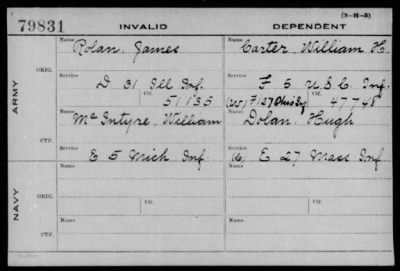 (3-H-3)
79831 INVALID DEPENDENT
ARMY
ORIG.
Name Rolan, James
Name Carter, William H.
Service D 31 Ill Inf.
Ctf. 51135
Service F 5 U.S.C. Inf.
Ctf. 47748
CTF.
Name McIntyre, William
Name Dolan, Hugh
Service E 5 Mich Inf
Service E 27 Mass Inf
NAVY
ORIG.
Name
Ctf.
Name
Ctf.
CTF.
Name
Name